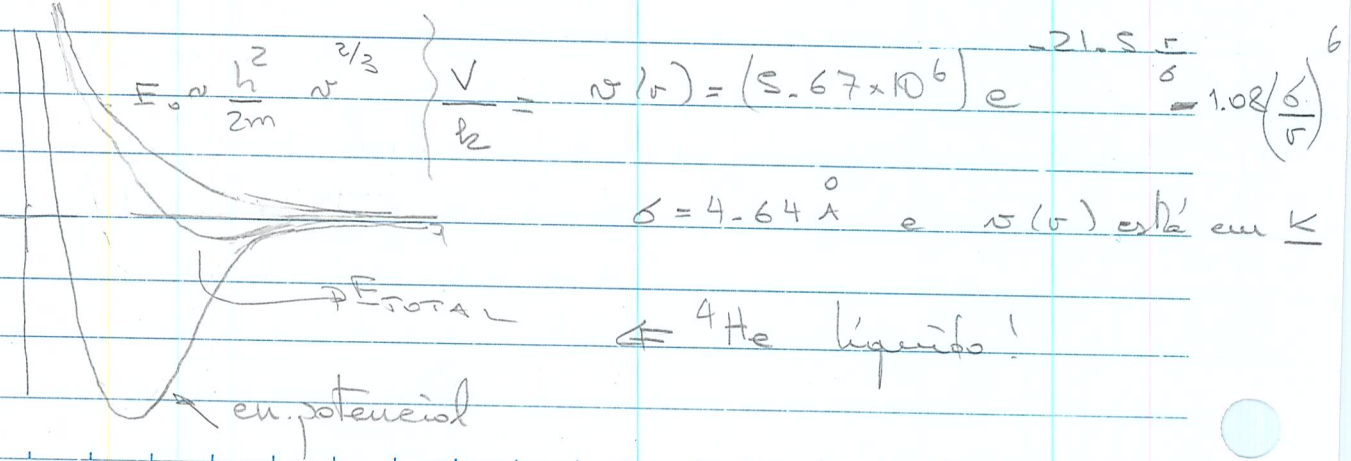 E₀ ~ h²/2m v^(2/3) } V/k = v(r) = (5.67×10⁶) e^(-21.5 r/σ) - 1.08 (σ/r)⁶
σ = 4.64 Å e v(r) está em K
E TOTAL
⇐ ⁴He líquido!
en. potencial